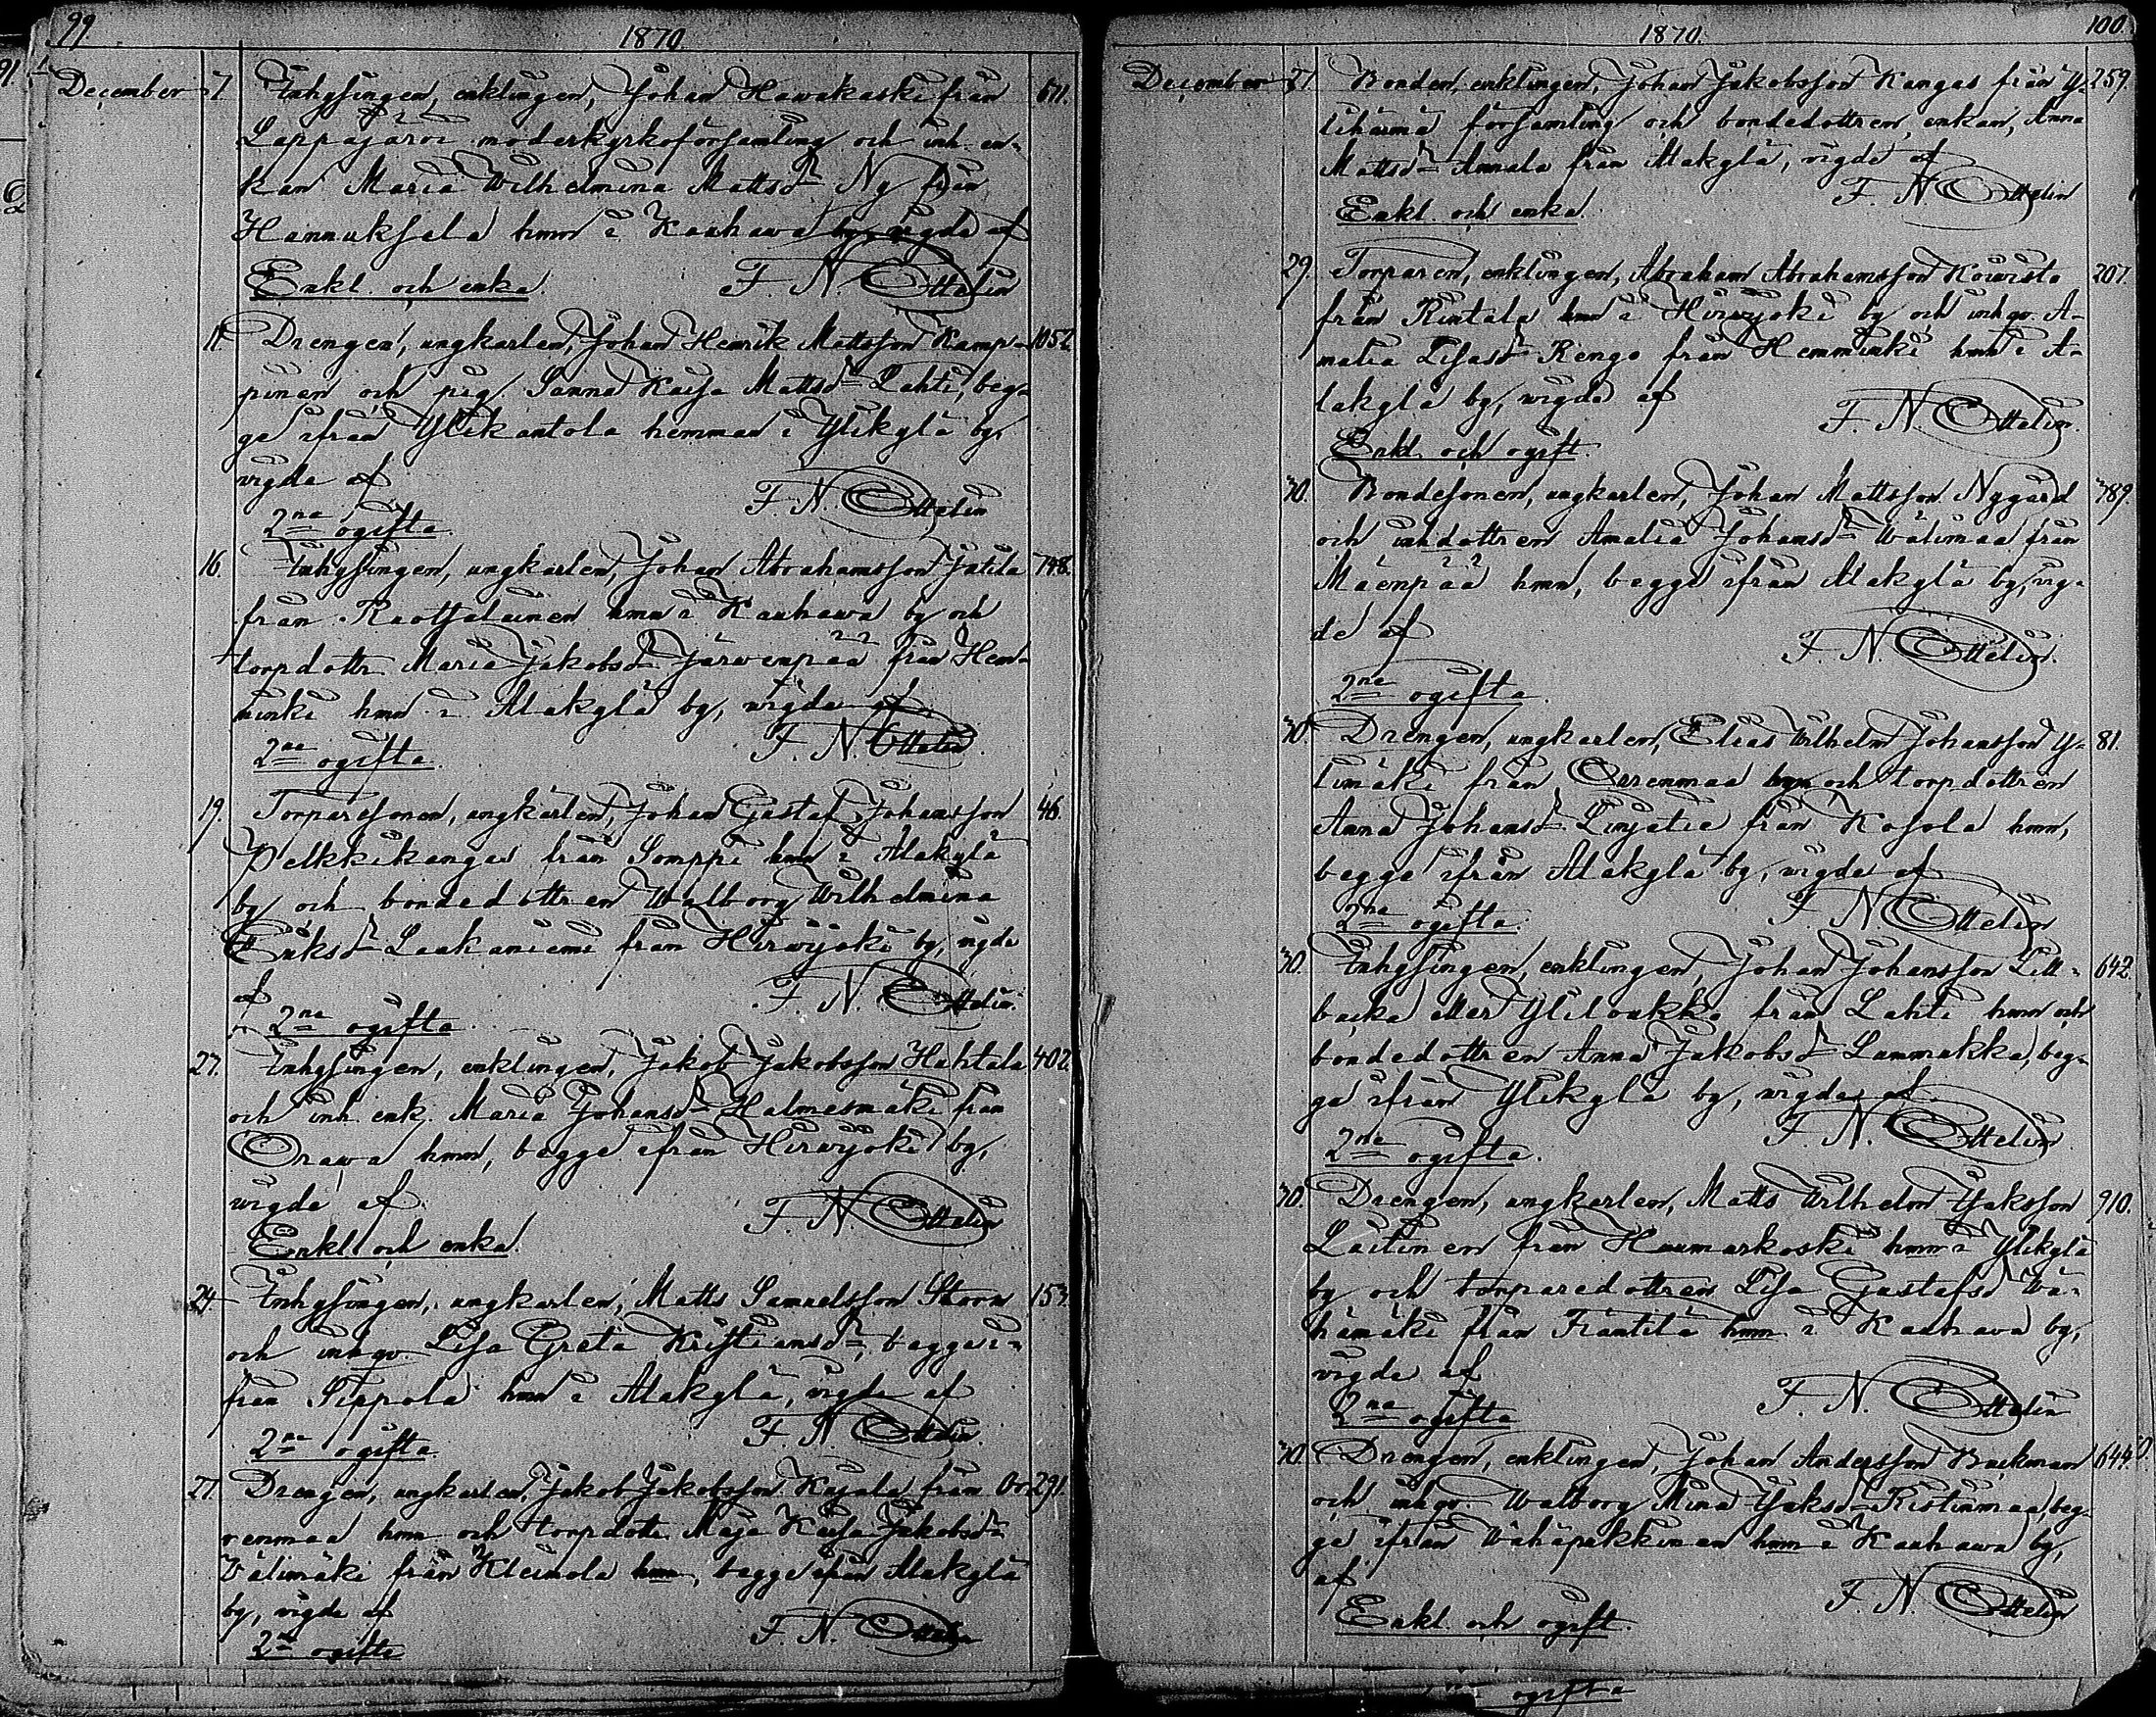 99
1870.
December 7. Inhysingen, enklingen, Johan Hawukaski från 671.
Lappajärvi moderkyrkoförsamling och inh. en-
kan Maria Wilhelmina Mattsdr Ny från
Hannuksela hmn i Kauhawa by, vigde af
Enkl. och enka. F. N. Ottelin
11. Drengen, ungkarlen, Johan Henrik Mattsson Kamp- 1052.
pinen och pig. Sanna Kaisa Mattsdr Lahti, beg-
ge ifrån Ylikantola hemman i Ylikylä by,
vigde af F. N. Ottelin
2ne ogifta.
16. Inhysingen, ungkarlen, Johan Abrahamsson Jutila 748.
från Ruotsalainen hmn i Kauhawa by och
torpdottr. Maria Jakobsdr Järwenpää från Hem-
minki hmn i Alakylä by, vigde af
2ne ogifta. F. N. Ottelin
19. Torparesonen, ungkarlen, Johan Gustaf Johansson 46.
Pelkkikangas från Somppi hmn i Alakylä
by och bondedottren Walborg Wilhelmina
Eriksdr Laakaniemi från Hirwijoki by, vigde
af F. N. Ottelin.
2ne ogifta.
27. Inhysingen, enklingen, Jakob Jakobsson Huhtala 402.
och inh. enk. Maria Johansdr Halmesmäki från
Orawa hmn, begge ifrån Hirwijoki by,
vigde af F. N. Ottelin
Enkl. och enka.
24. Inhysingen, ungkarlen, Matts Samuelsson Storm 153.
och inhqv. Lisa Greta Kristiansdr, begge i-
från Sippola hmn i Alakylä, vigde af
2ne ogifta. F. N. Ottelin
27. Drengen, ungkarlen, Jakob Jakobsson Kujala från Or- 291.
renmaa hmn och torpdottr. Maja Kaisa Jakobsdr
Välimäki från Kleimola hmn, begge ifrån Alakylä
by, vigde af F. N. Ottelin
2ne ogifta
100.
1870.
December 27. Bonden, enklingen, Johan Jakobsson Kangas från Y- 259.
lihärmä församling och bondedottren, enkan, Anna
Mattsdr Annala från Alakylä, vigde af
Enkl. och enka. F. N. Ottelin
29. Torparen, enklingen, Abraham Abrahamsson Koivisto 207.
från Rintala hmn i Hirwijoki by och inhqv. A-
malia Lisasdr Rengo från Hemminki hmn i A-
lakylä by, vigde af F. N. Ottelin.
Enkl. och ogift.
30. Bondesonen, ungkarlen, Johan Mattsson Nygård 389.
och inhdottren Amalia Johansdr Wälimaa från
Mäenpää hmn, begge ifrån Alakylä by, vig-
de af F. N. Ottelin.
2ne ogifta.
30. Drengen, ungkarlen, Elias Wilhelm Johansson Y- 81.
limäki från Orrenmaa hmn och torpdottren
Anna Johansdr Linjatie från Kosola hmn,
begge ifrån Alakylä by, vigde af
2ne ogifta. F. N. Ottelin
30. Inhysingen, enklingen, Johan Johansson Lill- 642.
backa eller Yliloukko från Lahti hmn och
bondedottren Anna Jakobsdr Lammukka, beg-
ge ifrån Ylikylä by, vigde af
2ne ogifta. F. N. Ottelin
30. Drengen, ungkarlen, Matts Wilhelm Isaksson 910.
Laitinen från Huumarkoski hmn i Ylikylä
by och torparedottren Lisa Gustafsd Wä-
hämäki från Fräntilä hmn i Kauhava by,
vigde af F. N. Ottelin
2ne ogifta
30. Drengen, enklingen, Johan Andersson Backman 644.
och inhqv. Walborg Mina Isaksdr Ristinmaa, beg-
ge ifrån Wähäpakkinen hmn i Kauhawa by,
af F. N. Ottelin
Enkl. och ogift.
ogifta